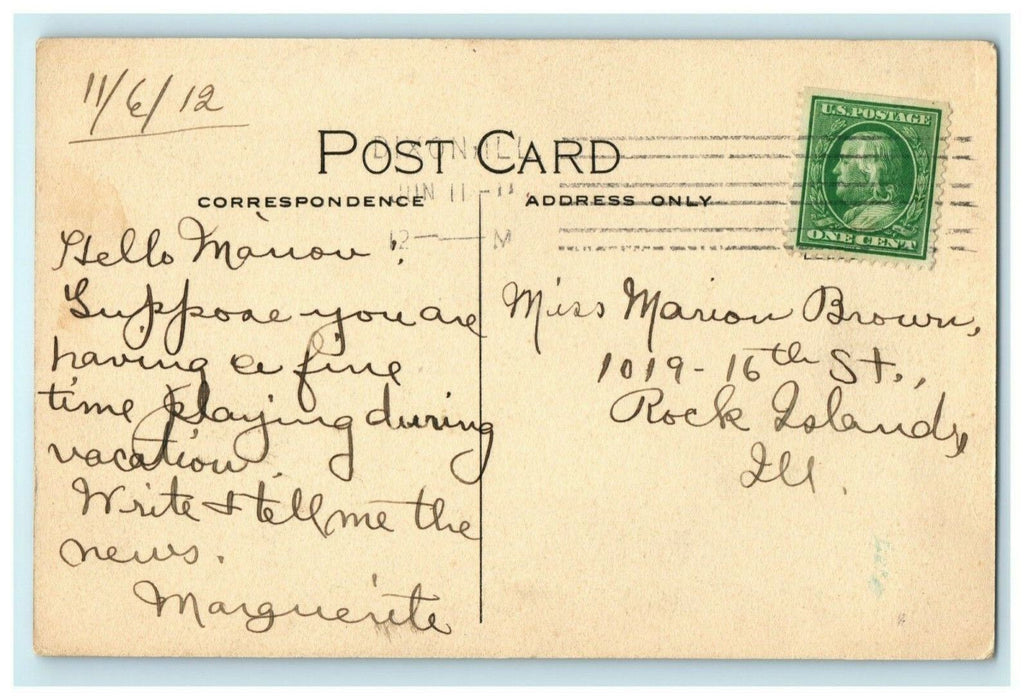 11/6/12
POST CARD
DIXON ILL
JUN 11
12 M
U.S.POSTAGE
ONE CENT
CORRESPONDENCE
ADDRESS ONLY
Hello Marion!
Suppose you are
having a fine
time playing during
vacation.
Write & tell me the
news.
Marguerite
Miss Marion Brown,
1019-16th St.,
Rock Island,
Ill.